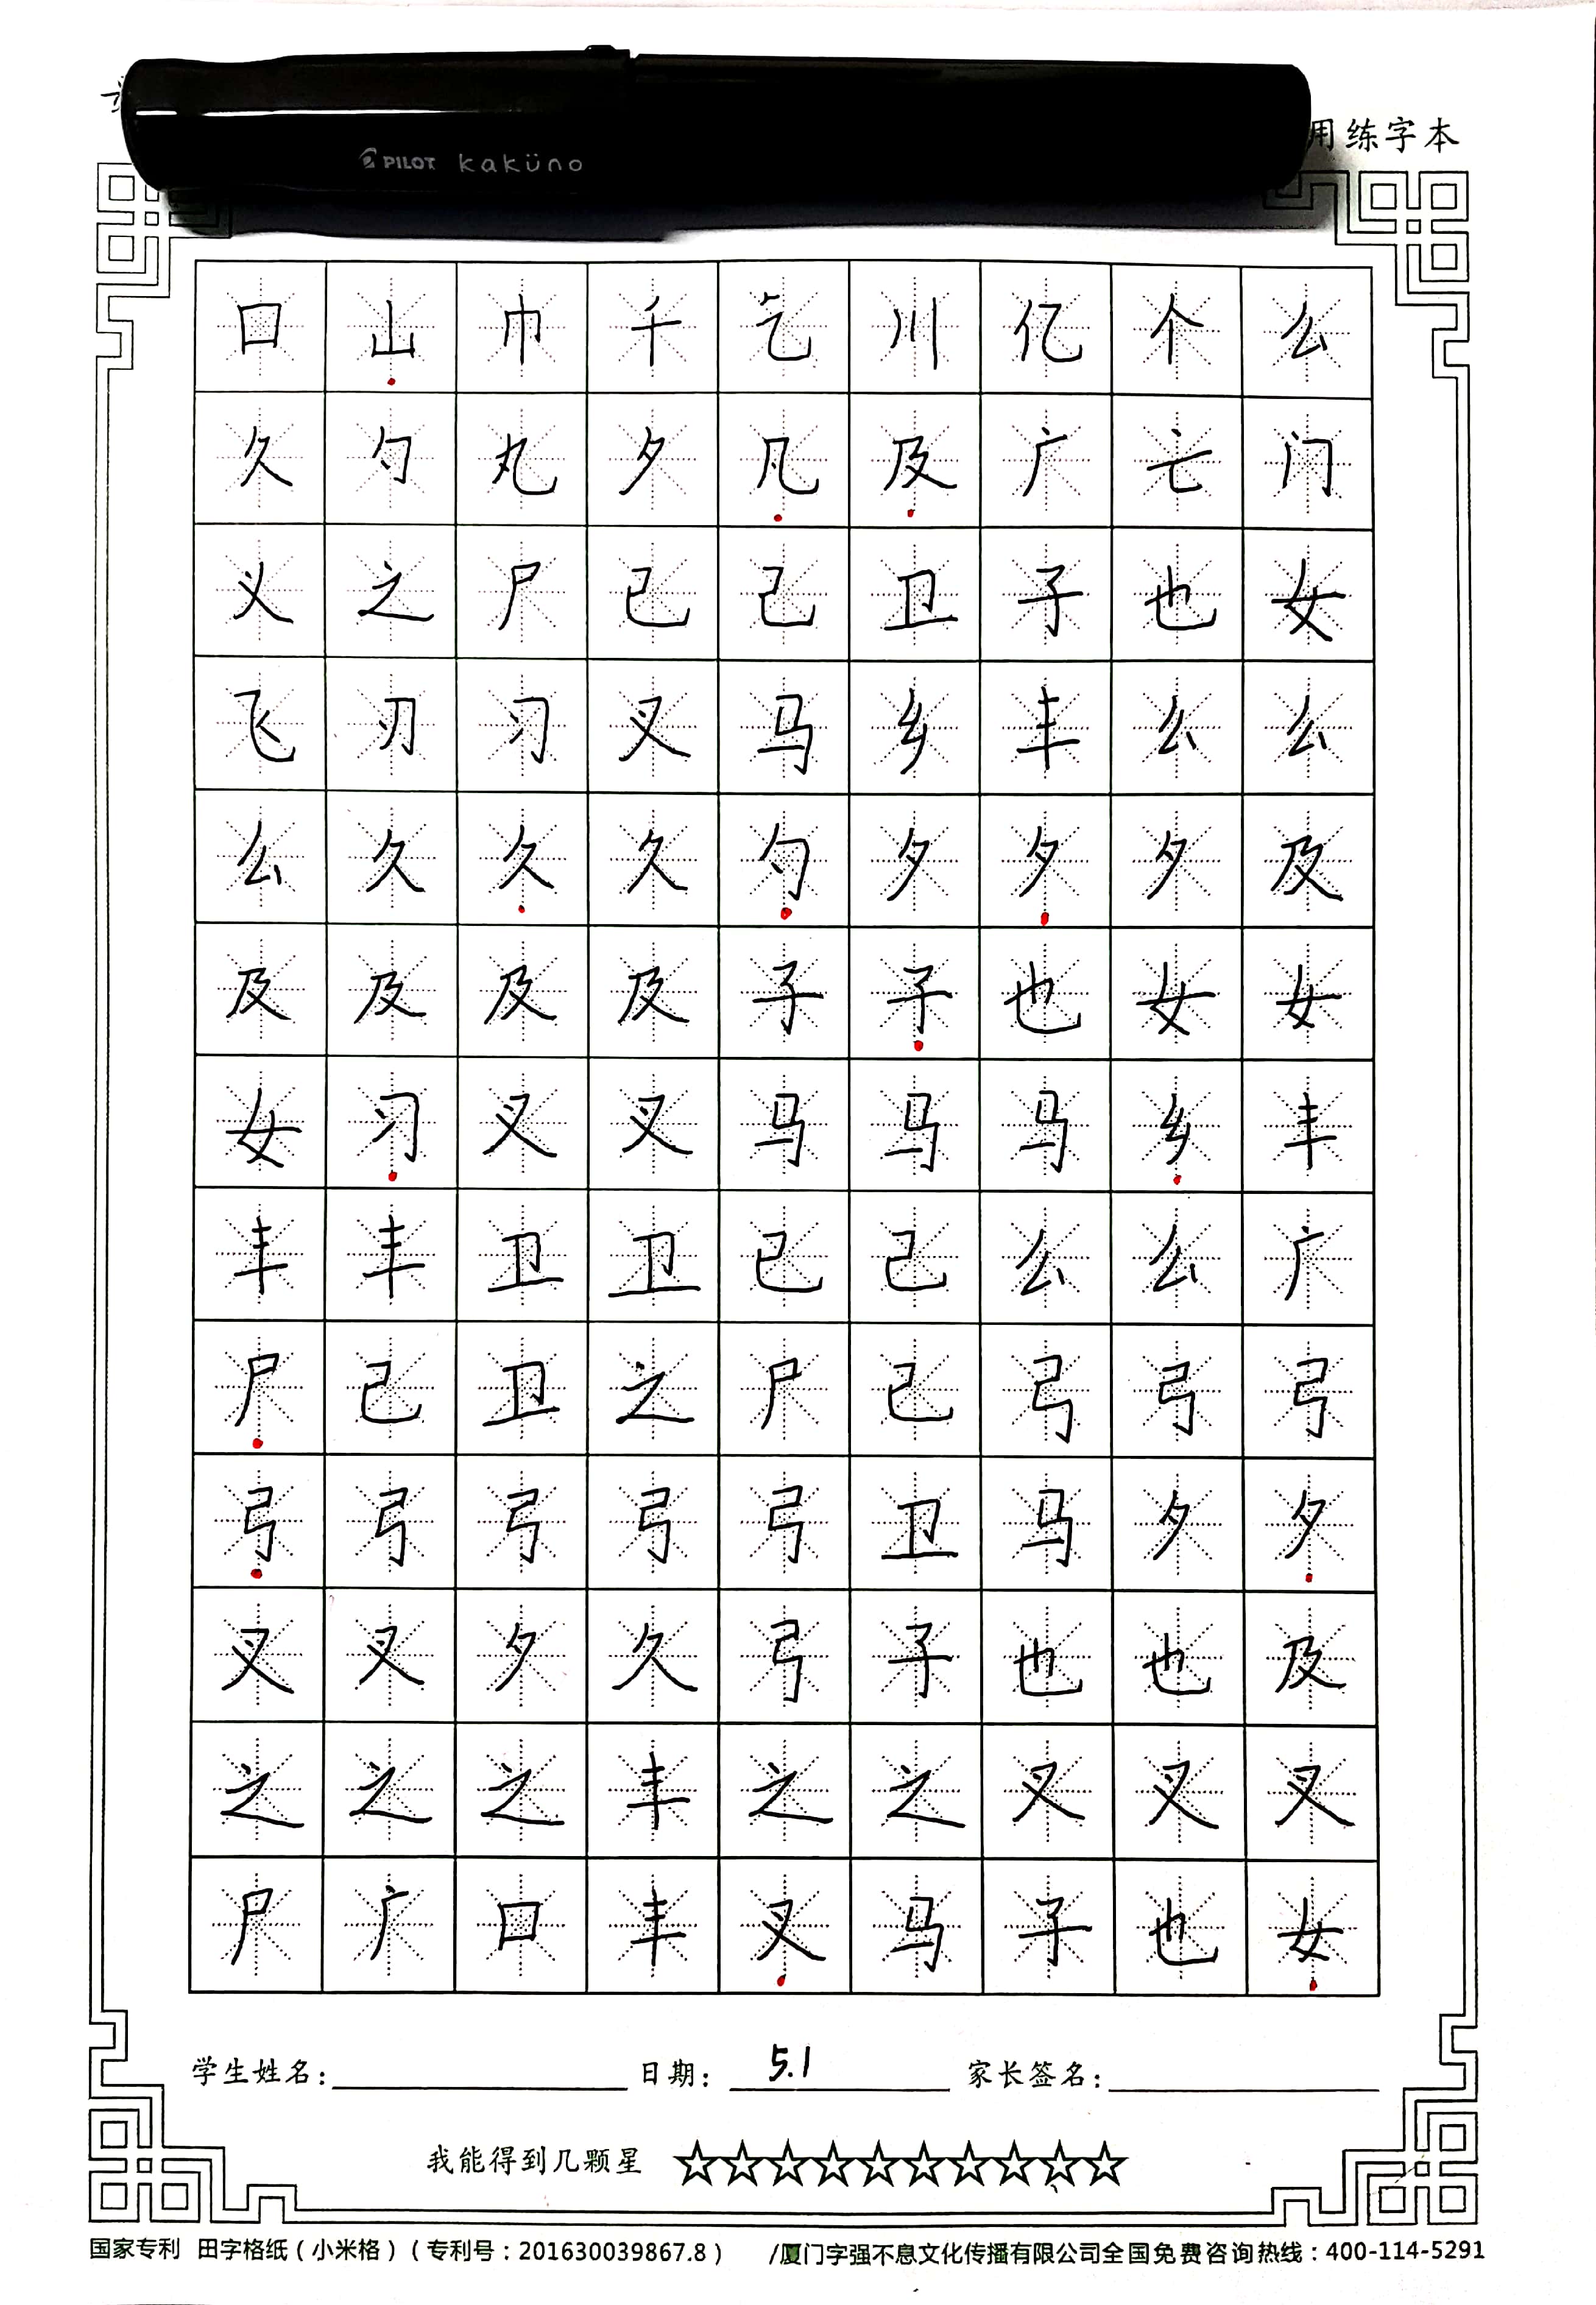 PILOT kaküno
用练字本
口 山 巾 千 乞 川 亿 个 么
久 勺 丸 夕 凡 及 广 亡 门
义 之 尸 已 己 卫 子 也 女
飞 刃 习 叉 马 乡 丰 么 么
么 久 久 久 勺 夕 夕 夕 及
及 及 及 及 子 子 也 女 女
女 习 叉 叉 马 马 马 乡 丰
丰 丰 卫 卫 已 己 么 么 广
尸 己 卫 之 尸 己 弓 弓 弓
弓 弓 弓 弓 弓 卫 马 夕 夕
叉 叉 夕 久 弓 子 也 也 及
之 之 之 丰 之 之 叉 叉 叉
尸 广 口 丰 叉 马 子 也 女
学生姓名: 日期: 5.1 家长签名:
我能得到几颗星 ☆☆☆☆☆☆☆☆☆☆
国家专利 田字格纸(小米格)(专利号:201630039867.8) /厦门字强不息文化传播有限公司全国免费咨询热线:400-114-5291